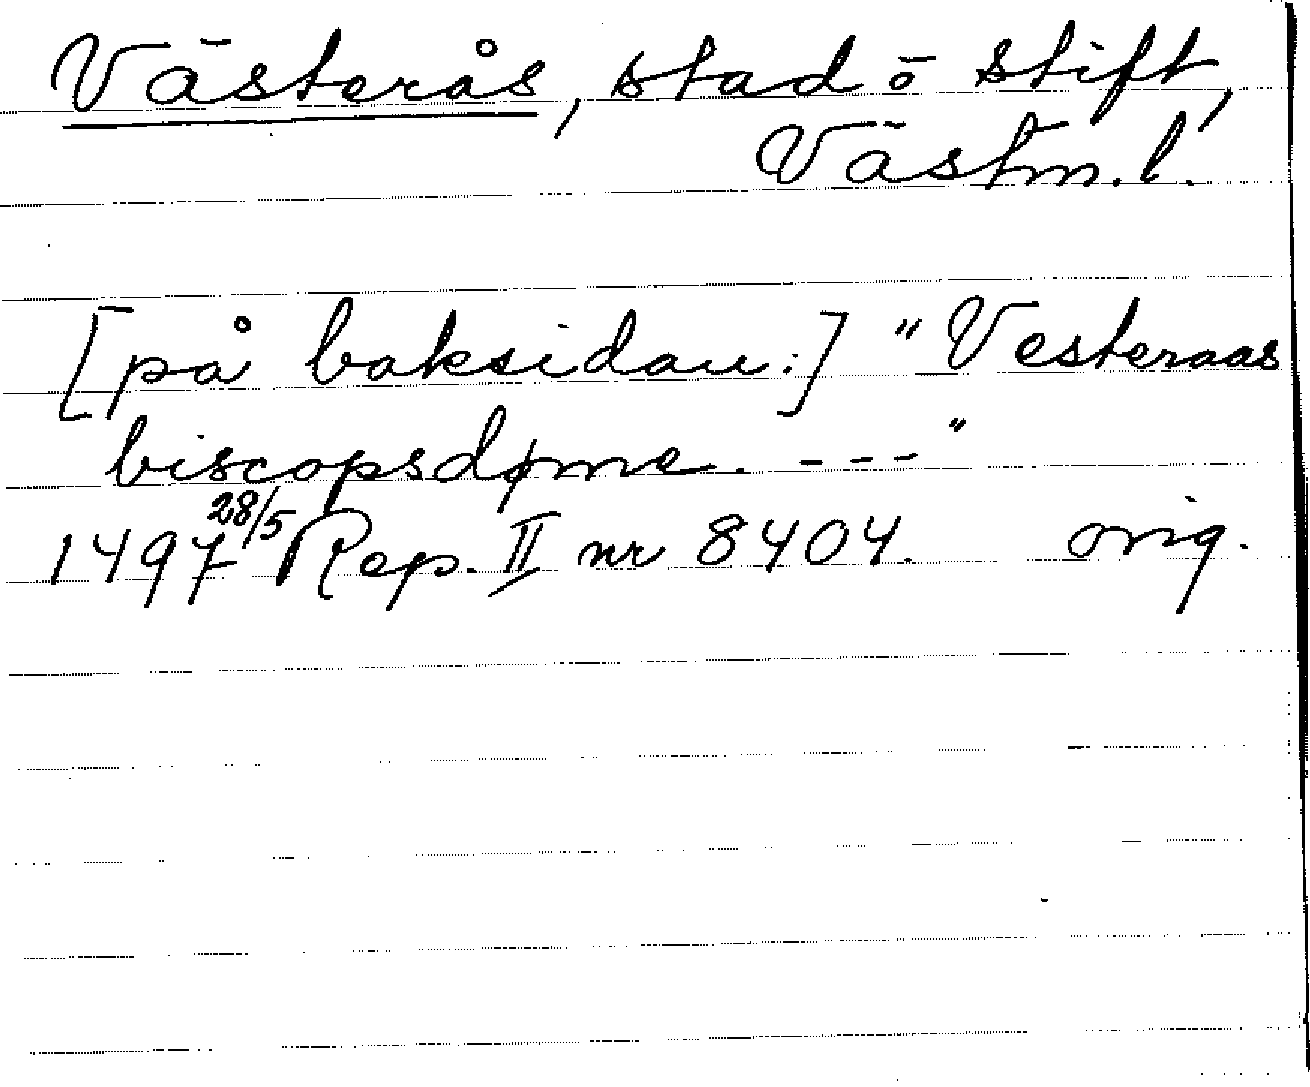 Västerås, stad ō stift,
Västm.l.
[på baksidan:] "Vesteraas
biscopsdøme. ---"
1497 28/5 Rep. II nr 8404. orig.